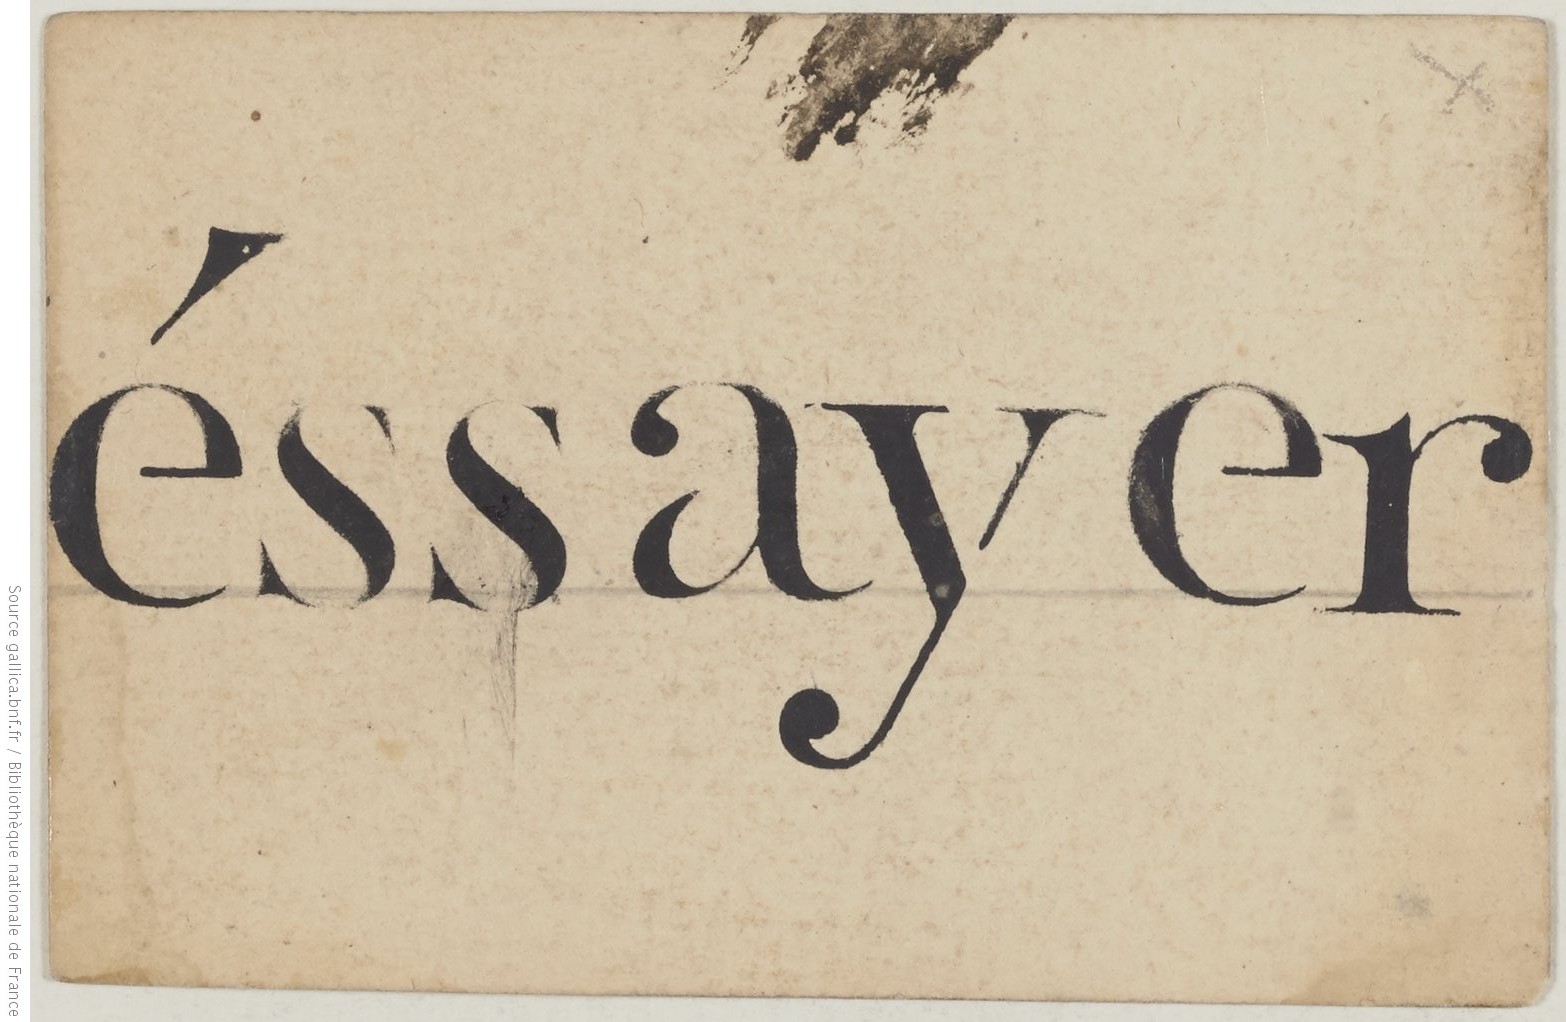 éssayer
Source gallica.bnf.fr / Bibliothèque nationale de France